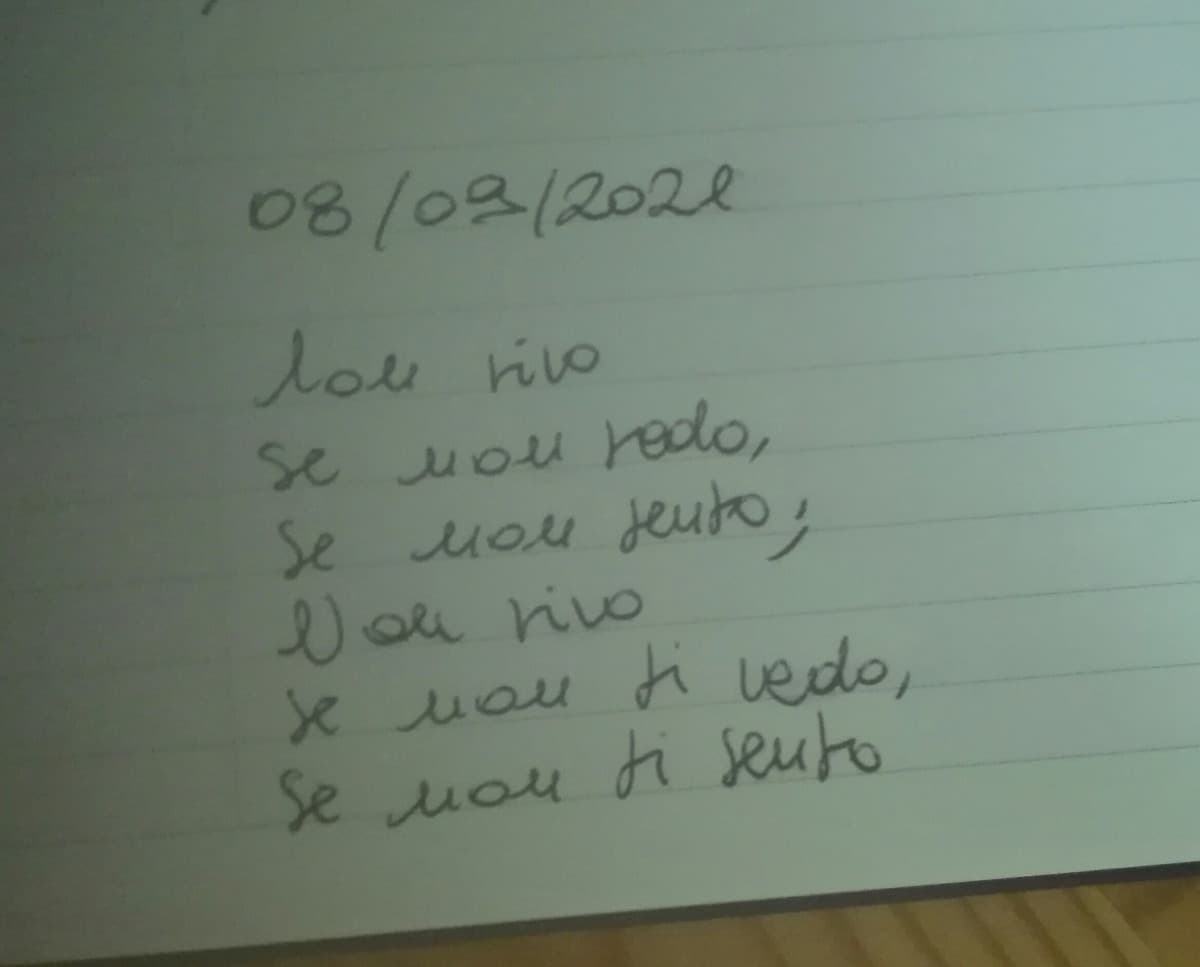 08/09/2021
Non vivo
se non vedo,
se non sento;
Non vivo
se non ti vedo,
se non ti sento